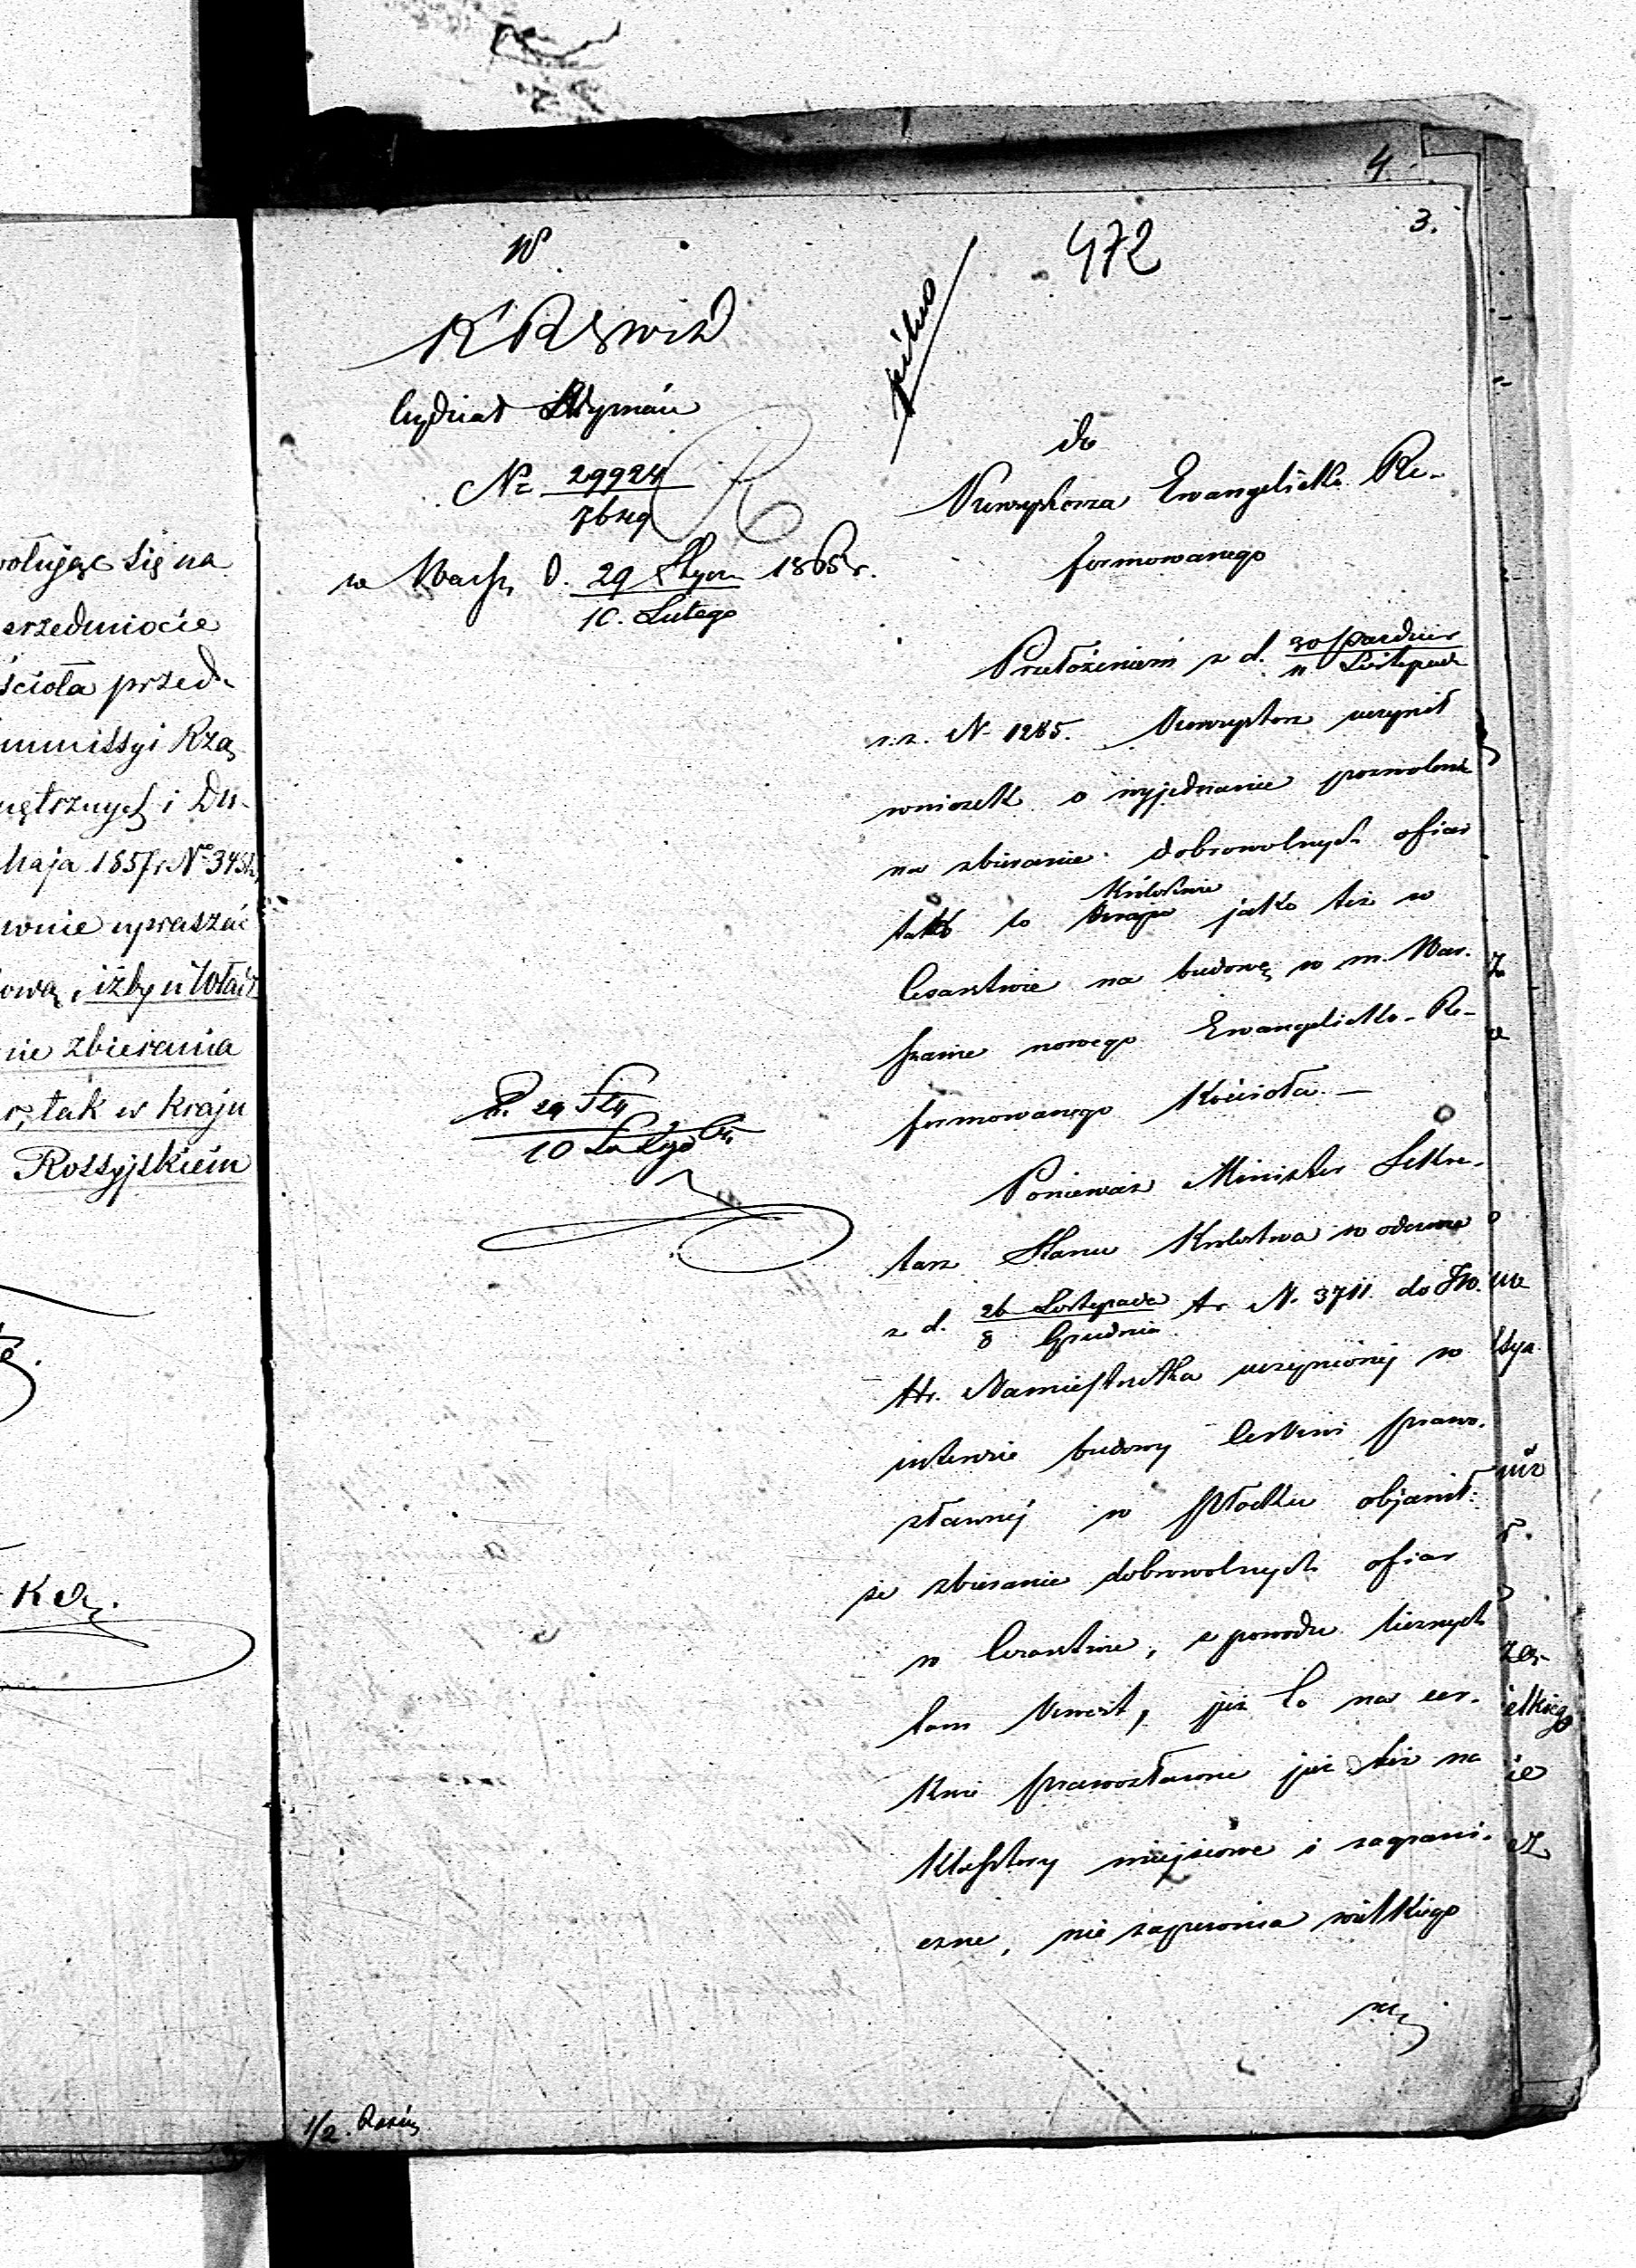 wołując się na
przedmiocie
ścioła przed
ommissyi Rzą
nętrznych i Du-
Maja 1857 r. N° 
wnie upraszać
ową, iżby u Władz
nie zbierania
r, tak w kraju
Rossyjskiem
4.
3.
472
pilno
KRSWiD
Wydział
N° 29924
w Warsz. d. 29 Stycz. 1865 r.
10. Lutego
do
Konsystorza Ewangelicko Re-
formowanego
Przełożeniem z d. 30 Paździer
11 Listopada
r.z. N. 1285. Konsystorz uczynił
wniosek o wyjednanie pozwolenia
na zbieranie dobrowolnych ofiar
Królestwie
tak to w kraju jako też w
Cesarstwie na budowę w m. War-
szawie nowego Ewangelicko-Re-
formowanego Kościoła.—
d. 29 Sty
10 Lutego
Ponieważ Minister Sekre-
tarz Stanu Królestwa w odezwie
z d. 26 Listopada t.r. N. 3711. do JW.
8 Grudnia
Hr. Namiestnika uczynionej w
interesie budowy Cerkwi prawo-
sławnej w Płocku objawił:
że zbieranie dobrowolnych ofiar
w Cesarstwie, z powodu licznych
tam kwest, już to na cer-
kwie prawosławne już też na
klasztory miejscowe i zagrani-
czne, nie zapewnia wielkiego
1/2.